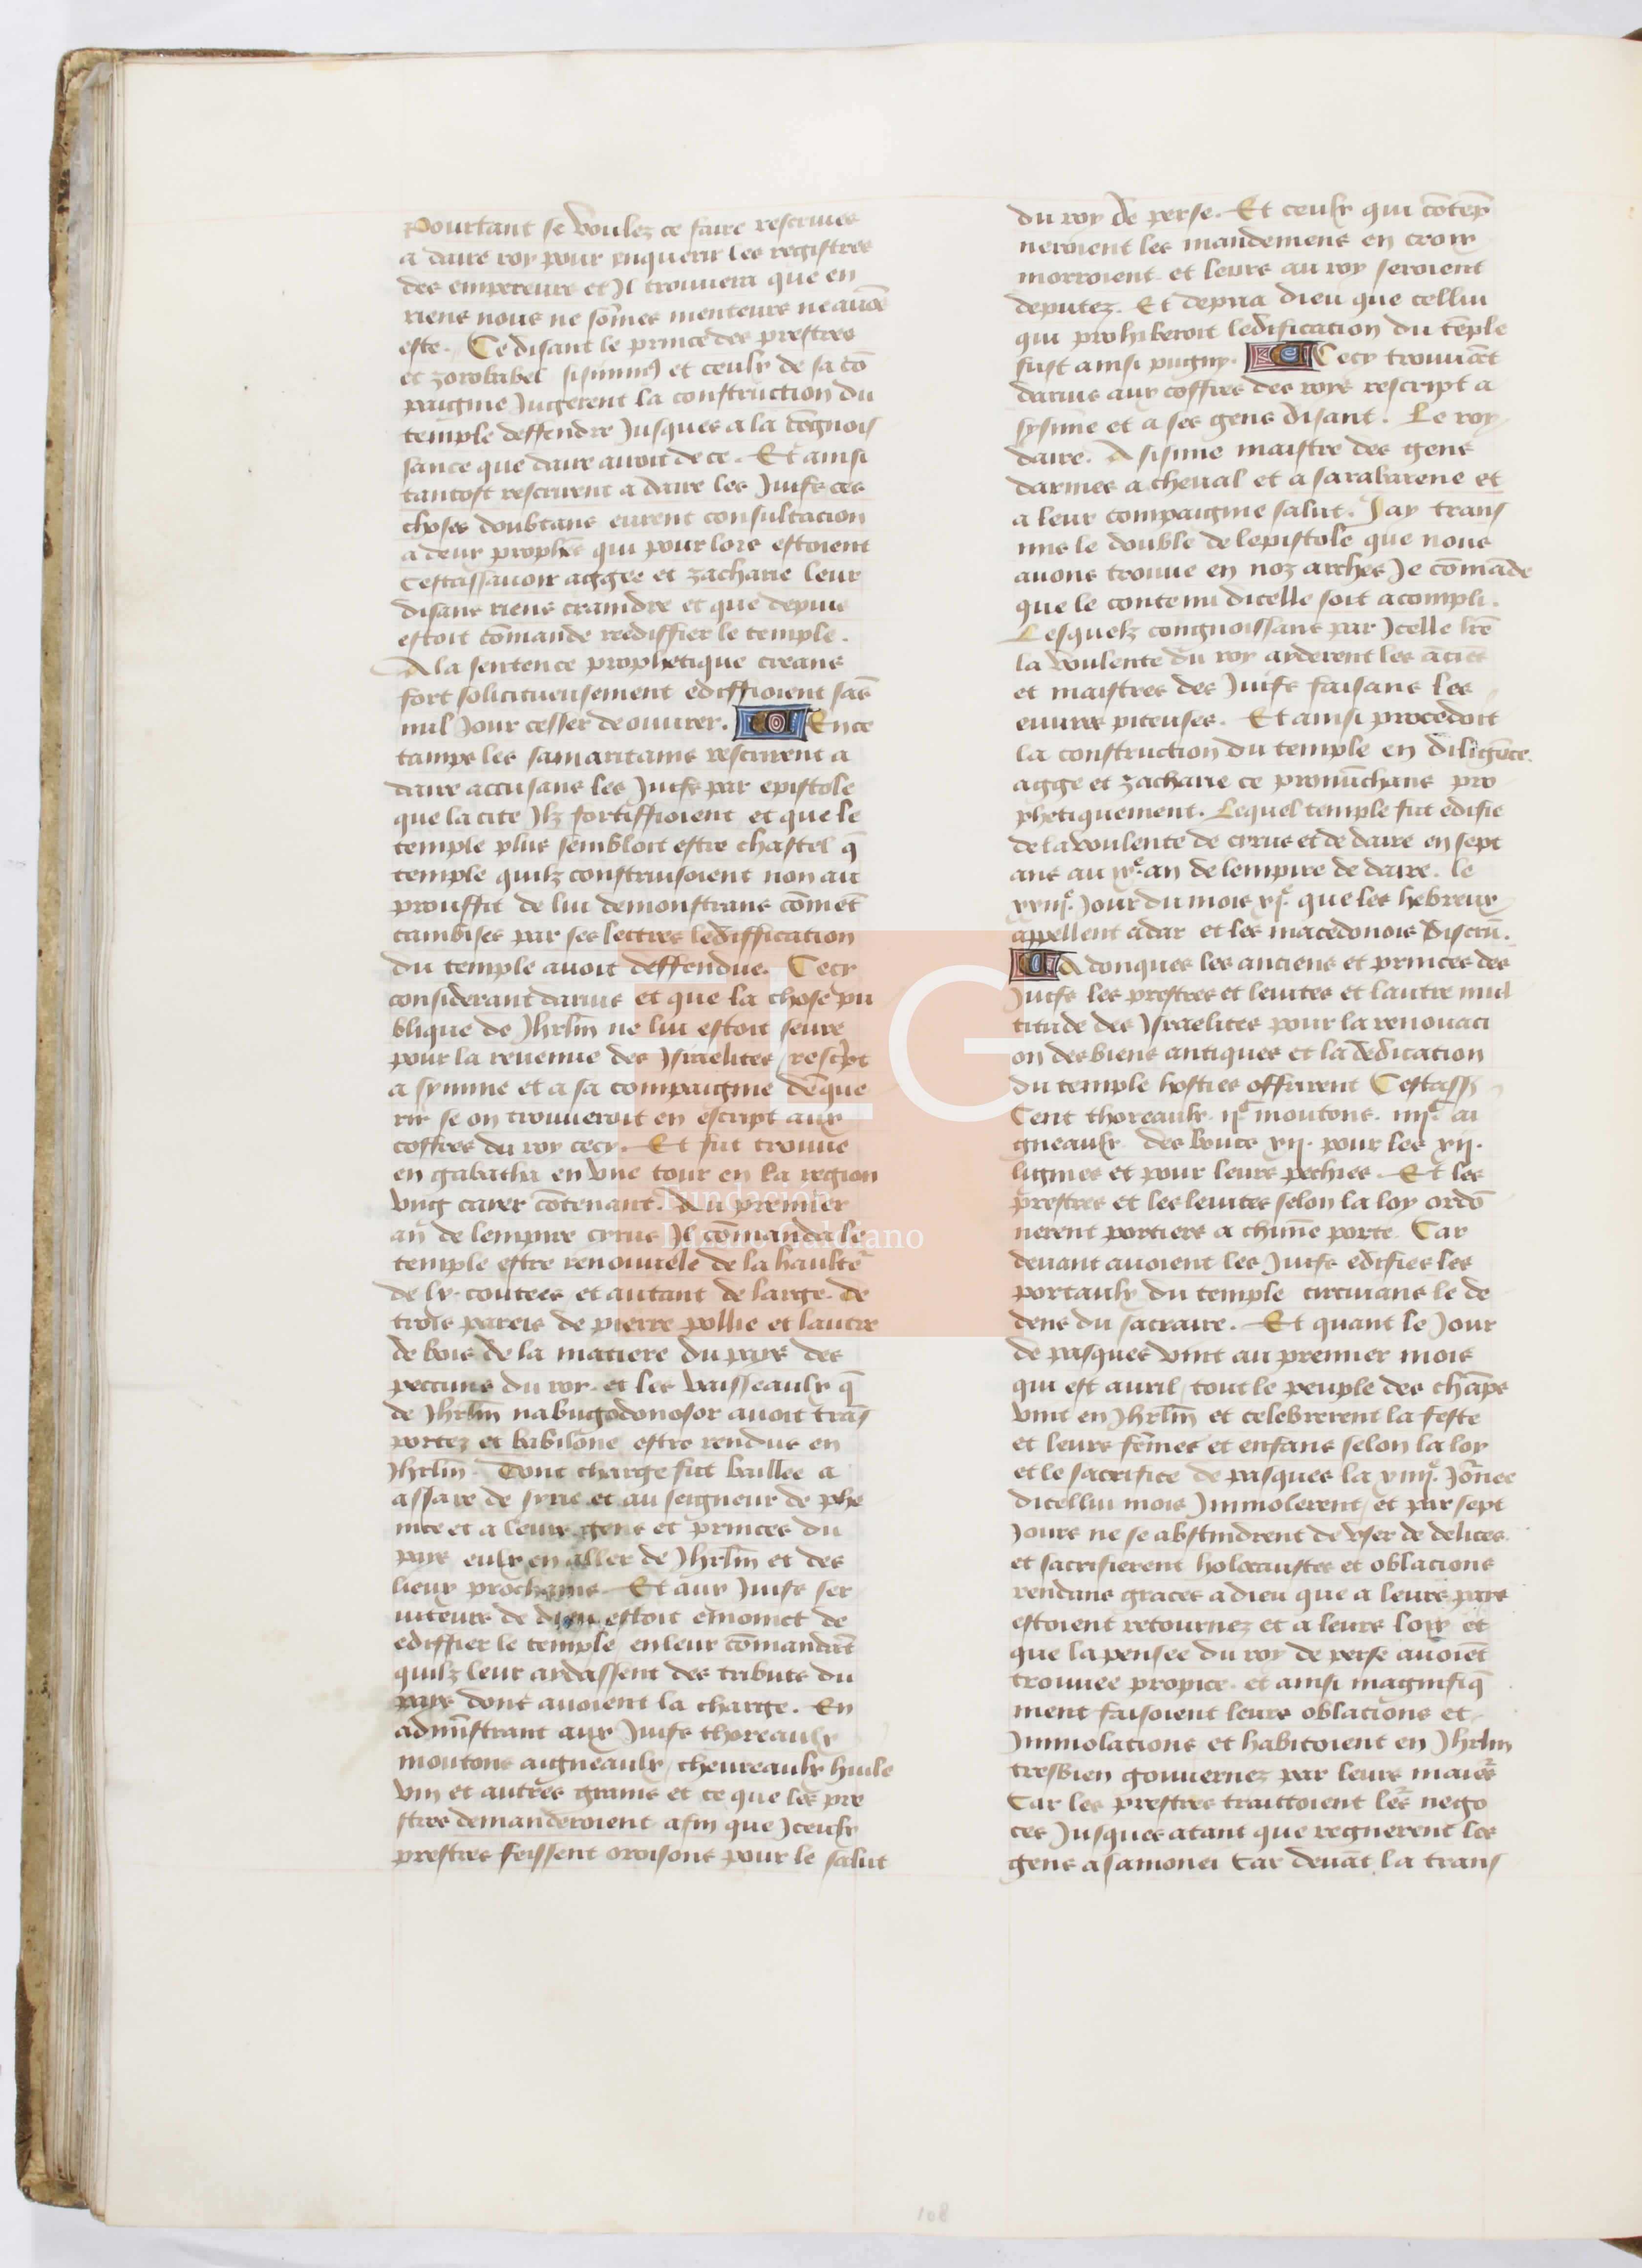 Pourtant se voulez ce faire rescrives
a daire roy pour enquerir les registres
des empereurs et Il trouuera que en
riens nous ne so̅mes menteurs ne auo̅s
este. Ce disant le prince des prestres
et zorobabel sisinnus et ceulx de sa co̅
paignie Jugerent la construction du
temple deffendre Jusques a la co̅gnois
sance que daire auoit de ce. Et ainsi
tantost rescrirent a daire les Juifs ces
choses doubtans eurent consultacion
a deux prophe̅s qui pour lors estoient
Cestassauoir aggee et zacharie leur
disans riens craindre et que depieu
estoit co̅mande reediffier le temple.
A la sentence prophetique creans
fort solicitueusement ediffioient sa̅s
nul Jour cesser de ouurer. En ce
tamps les samaritains rescrirent a
daire accusans les Juifs par epistole
que la cite Ilz fortiffioient et que le
temple plus sembloit estre chastel q̅
temple quilz construisoient non au
prouffit de lui demonstrans co̅me̅t
cambises par ses lectres lediffication
du temple auoit deffendue. Cecy
considerant darius et que la chose pu
blique de Jhrl̅m ne lui estoit seure
pour la reuenue des Israelites rescript
a symine et a sa compaignie de̅que
rir se on trouueroit en escript aux
coffres du roy cecy. Et fut trouue
en gabatha en vne tour en la region
vng cayer co̅tenant. Au premier
an de lempire cirus Il co̅manda le
temple estre renouuele de la haulte̅
de lx. coutees et autant de large. de
trois pareis de pierre pollie et lautre
de bois de la matiere du pays des
peccuns du roy. et les vaisseaulx q̅
de Jhrl̅m nabugodonosor auoit tra̅s
portez et babilone estre rendus en
Jhrl̅m. Dont charge fut baillee a
assare de syrie et au seigneur de phe
nice et a leurs gens et princes du
pays eulx en aller de Jhrl̅m et des
lieux prochains. Et aux Juifs ser
uiteurs de dieu estoit e̅nioinct de
ediffier le temple en leur co̅manda̅t
quilz leur aydassent des tributs du
pays dont auoient la charge. En
admi̅strant aux Juifs thoreaulx
moutons aigneaulx cheureaulx huile
vin et autres grains et ce que les pre
stres demanderoient afin que Iceulx
prestres feissent oroisons pour le salut
du roy de perse. Et ceulx qui co̅tep̅
neroient les mandemens en croix
morroient et leurs au roy seroient
deputez. Et depria dieu que cellui
qui prohiberoit ledification du te̅ple
fust ainsi pugny. Cecy trouua̅t
darius aux coffres des roys rescript a
sysine et a ses gens disant. Le roy
daire. A sisine maistre des gens
darmes a cheual et a sarabarene et
a leur compaignie salut. Jay trans
mis le double de lepistole que nous
auons trouue en noz arches Je co̅ma̅de
que le contenu dicelle soit acompli.
Lesquelz congnoissans par Icelle lr̅e
la voulente du roy ayderent les a̅cie̅s
et maistres des Juifs faisans les
euures piteuses. Et ainsi procedoit
la construction du temple en dilige̅ce.
agge et zacharie ce pronu̅chans pro
phetiquement. Lequel temple fut edifie
de la voulente de cirus et de daire en sept
ans au ix.e an de lempire de daire. le
xxiij.e Jour du mois xij.e que les hebreux
appellent adar et les macedonois discru̅.
Adonques les anciens et princes des
Juifs les prestres et leuites et lautre mul
titude des Israelites pour la renouaci
on des biens antiques et la dedication
du temple hosties offrirent Cestass
Cent thoreaulx. ijc moutons. iiijc ai
gneaulx des boucs xij. pour les xij.
lignies et pour leurs pechies. Et les
prestres et les leuites selon la loy ordo̅
nerent portiers a chu̅ne porte. Car
deuant auoient les Juifs edifies les
portaulx du temple circuians le de
dens du sacraire. Et quant le Jour
de pasques vint au premier mois
qui est auril tout le peuple des cha̅ps
vint en Jhrl̅m et celebrerent la feste
et leurs fe̅mes et enfans selon la loy
et le sacrifice de pasques la xiiij.e Jo̅rnee
dicellui mois Immolerent et par sept
Jours ne se abstindrent de vser de delices.
et sacrifierent holocaustes et oblacions
rendans graces a dieu que a leurs pays
estoient retournez et a leurs loix et
que la pensee du roy de perse auoie̅t
trouuee propice. et ainsi magnifiq̅
ment faisoient leurs oblacions et
Immolacions et habitoient en Jhrlm
tresbien gouuernez par leurs maiers
Car les prestres traittoient le̅s nego
ces Jusques atant que regnerent les
gens asamonei Car deua̅t la trans
FLG
Fundación
Lázaro Galdiano
108